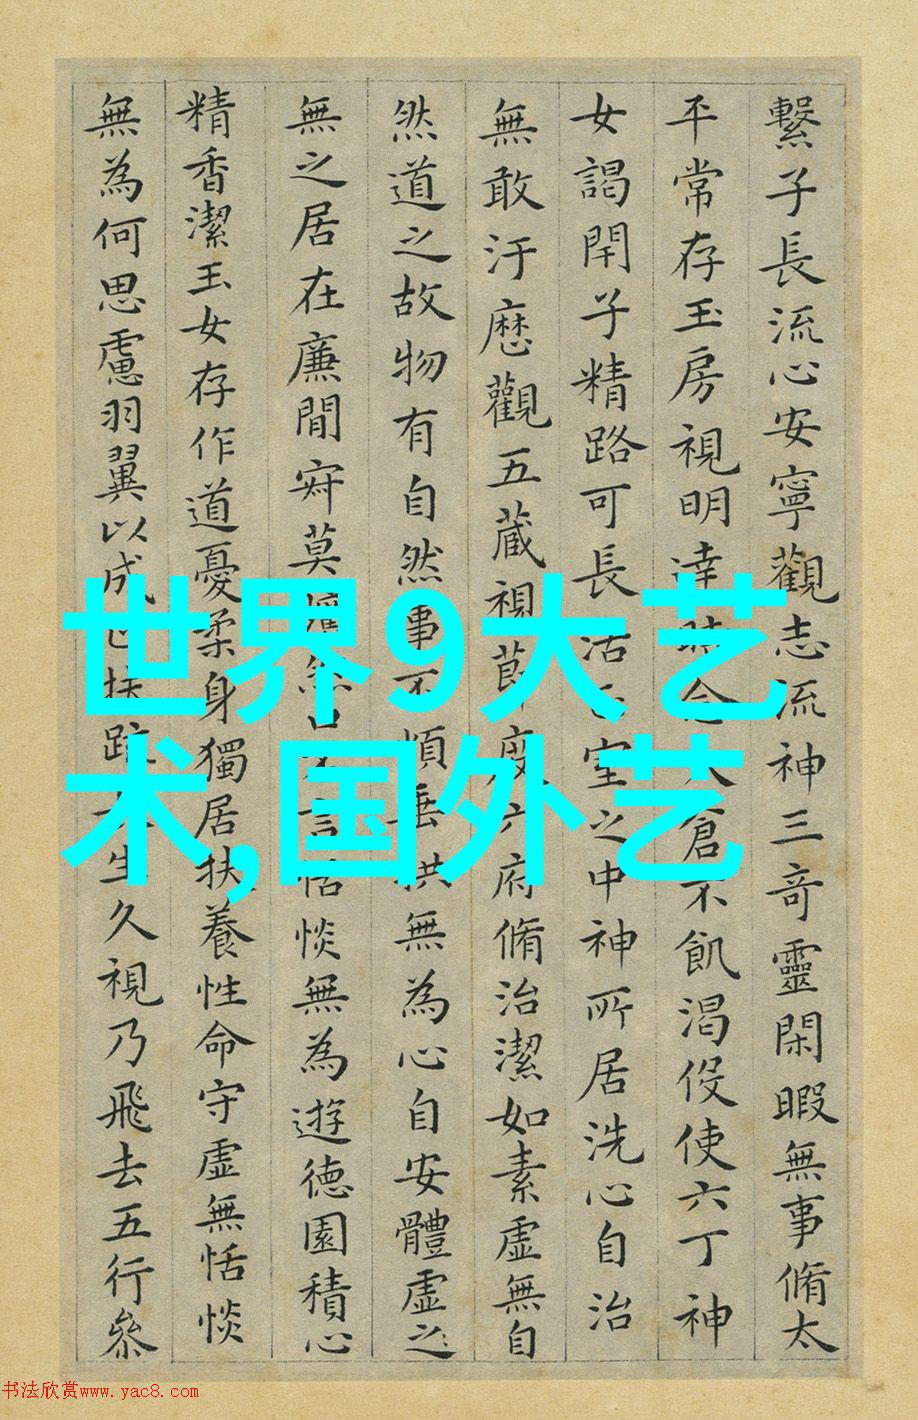 繫子長流心安寧觀志流神三奇靈閑暇無事脩太
平常存玉房視明達時念大倉不飢渴伇使六丁神
女謁閇子精路可長活正室之中神所居洗心自治
無敢汙歷觀五藏視節度六府脩治潔如素虛無自
然道之故物有自然事不煩垂拱無為心自安體虛之
無之居在廉間寂莫曠然口不言恬惔無為遊德園積心
精香潔玉女存作道憂柔身獨居扶養性命守虛無恬惔
無為何思慮羽翼以成正扶疏長生久視乃飛去五行參
世界9大艺
术,国外艺
书法欣赏www.yac8.com